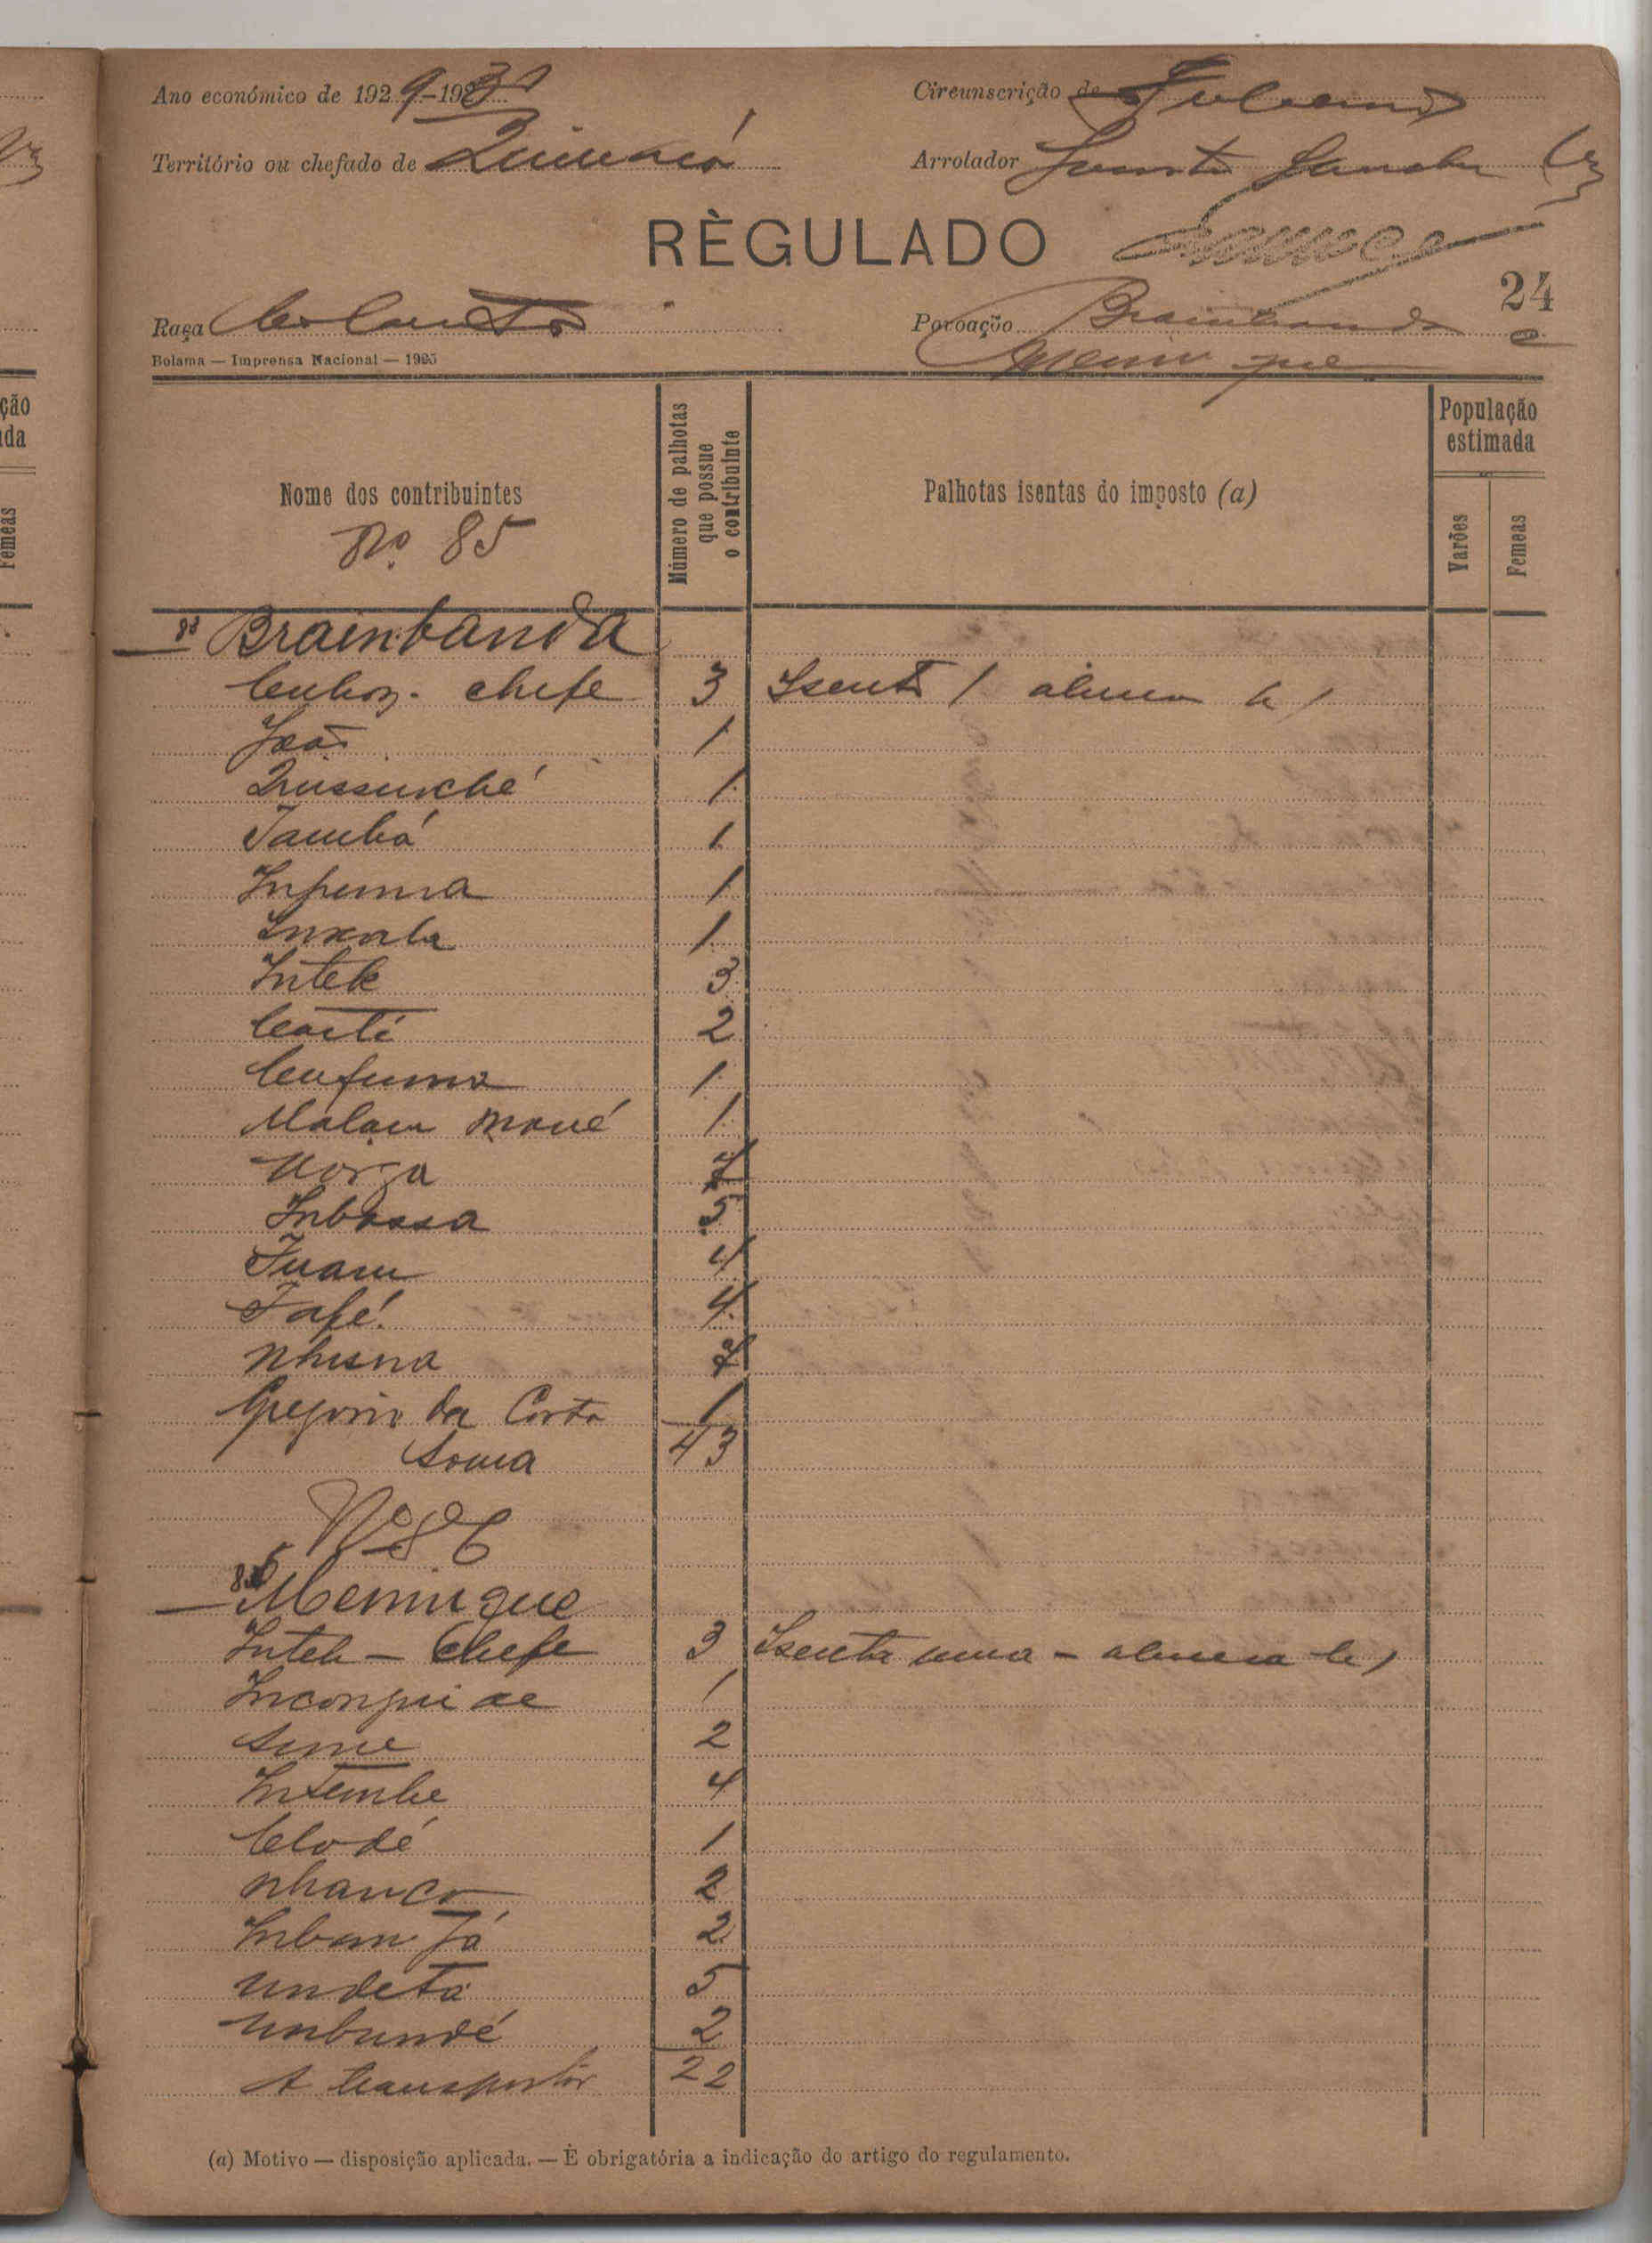 Ano económico de 1929-1930
Circunscrição de Fulacunda
Território ou chefado de Quinará
Arrolador
RÈGULADO
24
Raça
Povoação Brambanda e
Bolama — Imprensa Nacional — 1925
Memingue
Nome dos contribuintes
Número de palhotas que possue o contribuinte
Palhotas isentas do imposto (a)
População estimada
Varões
Femeas
Nº 85
Brainbanda
chefe 3 Isento 1 alinea b)
João 1
Qussunché 1
Tambá 1
Infunna 1
1
Intek 3
2
Cufuma 1
Malam Mané 1
Norça 7
Inbassa 5
Tuam 4
Tafé 4
Nhisna 7
Gregorio da Costa 1
Soma 43
Nº 86
Memingue
Inteh - Chefe 3 Isenta uma - alinea b)
1
2
Intembe 4
Clodé 1
Nhanco 2
Inbam Já 2
Undeta 5
Unbundé 2
A transportar 22
(a) Motivo — disposição aplicada. — É obrigatória a indicação do artigo do regulamento.